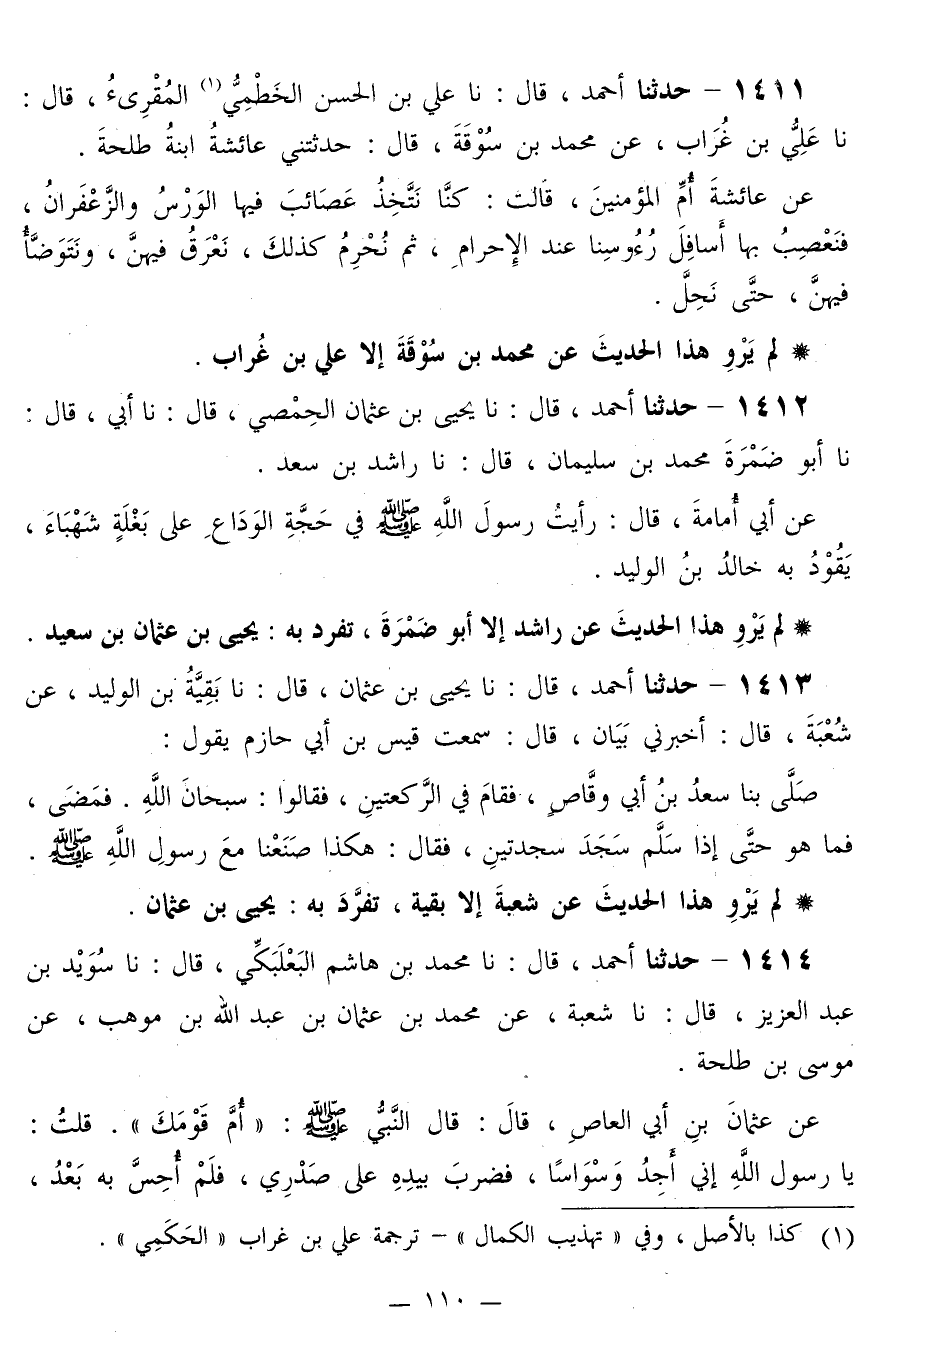 ١٤١١ – حدثنا أحمد ، قال : نا علي بن الحسن الخَطْمِيُّ(١) المُقْرِىءُ ، قال :
نا عَلِيُّ بن غُرَاب ، عن محمد بن سُوْقَةَ ، قال : حدثتني عائشةُ ابنةُ طلحةَ .
عن عائشةَ أُمِّ المؤمنينَ ، قَالت : كنَّا نَتَّخِذُ عَصَائبَ فيها الوَرْسُ والزَّعْفَرانُ ،
فنَعْصِبُ بها أَسافِلَ رُءُوسِنا عند الإِحرامِ ، ثم نُحْرِمُ كذلكَ ، نَعْرَقُ فيهنَّ ، ونَتَوَضَّأُ
فيهنَّ ، حتَّى نَحِلَّ .
* لم يَرْوِ هذا الحديثَ عن محمد بن سُوْقَةَ إلا علي بن غُراب .
١٤١٢ – حدثنا أحمد ، قال : نا يحيى بن عثمان الحِمْصي ، قال : نا أبي ، قال :
نا أبو ضَمْرَةَ محمد بن سليمان ، قال : نا راشد بن سعد .
عن أبي أُمامةَ ، قال : رأيتُ رسولَ اللَّهِ ﷺ في حَجَّةِ الوَدَاعِ على بَغْلَةٍ شَهْبَاءَ ،
يَقُوْدُ به خالدُ بنُ الوليد .
* لم يَرْوِ هذا الحديثَ عن راشد إلا أبو ضَمْرَةَ ، تفرد به : يحيى بن عثمان بن سعيد .
١٤١٣ – حدثنا أحمد ، قال : نا يحيى بن عثمان ، قال : نا بَقِيَّةُ بن الوليد ، عن
شُعْبَةَ ، قال : أخبرني بَيَان ، قال : سمعت قيس بن أبي حازم يقول :
صَلَّى بنا سعدُ بنُ أبي وقَّاصٍ ، فقامَ في الرَّكعتينِ ، فقالوا : سبحانَ اللَّهِ . فمَضَى ،
فما هو حتَّى إذا سَلَّم سَجَدَ سجدتينِ ، فقال : هكذا صنَعْنا معَ رسولِ اللَّهِ ﷺ .
* لم يَرْوِ هذا الحديثَ عن شعبةَ إلا بقية ، تفرَّدَ به : يحيى بن عثمان .
١٤١٤ – حدثنا أحمد ، قال : نا محمد بن هاشم البَعْلَبَكِّي ، قال : نا سُوَيْد بن
عبد العزيز ، قال : نا شعبة ، عن محمد بن عثمان بن عبد الله بن موهب ، عن
موسى بن طلحة .
عن عثمانَ بنِ أبي العاصِ ، قالَ : قال النَّبيُّ ﷺ : « أُمَّ قَوْمَكَ » . قلتُ :
يا رسول اللَّهِ إني أَجِدُ وَسْوَاسًا ، فضربَ بيدِهِ على صَدْرِي ، فلَمْ أُحِسَّ به بَعْدُ ،
(١) كذا بالأصل ، وفي « تهذيب الكمال » – ترجمة علي بن غراب « الحَكَمِي » .
— ١١٠ —